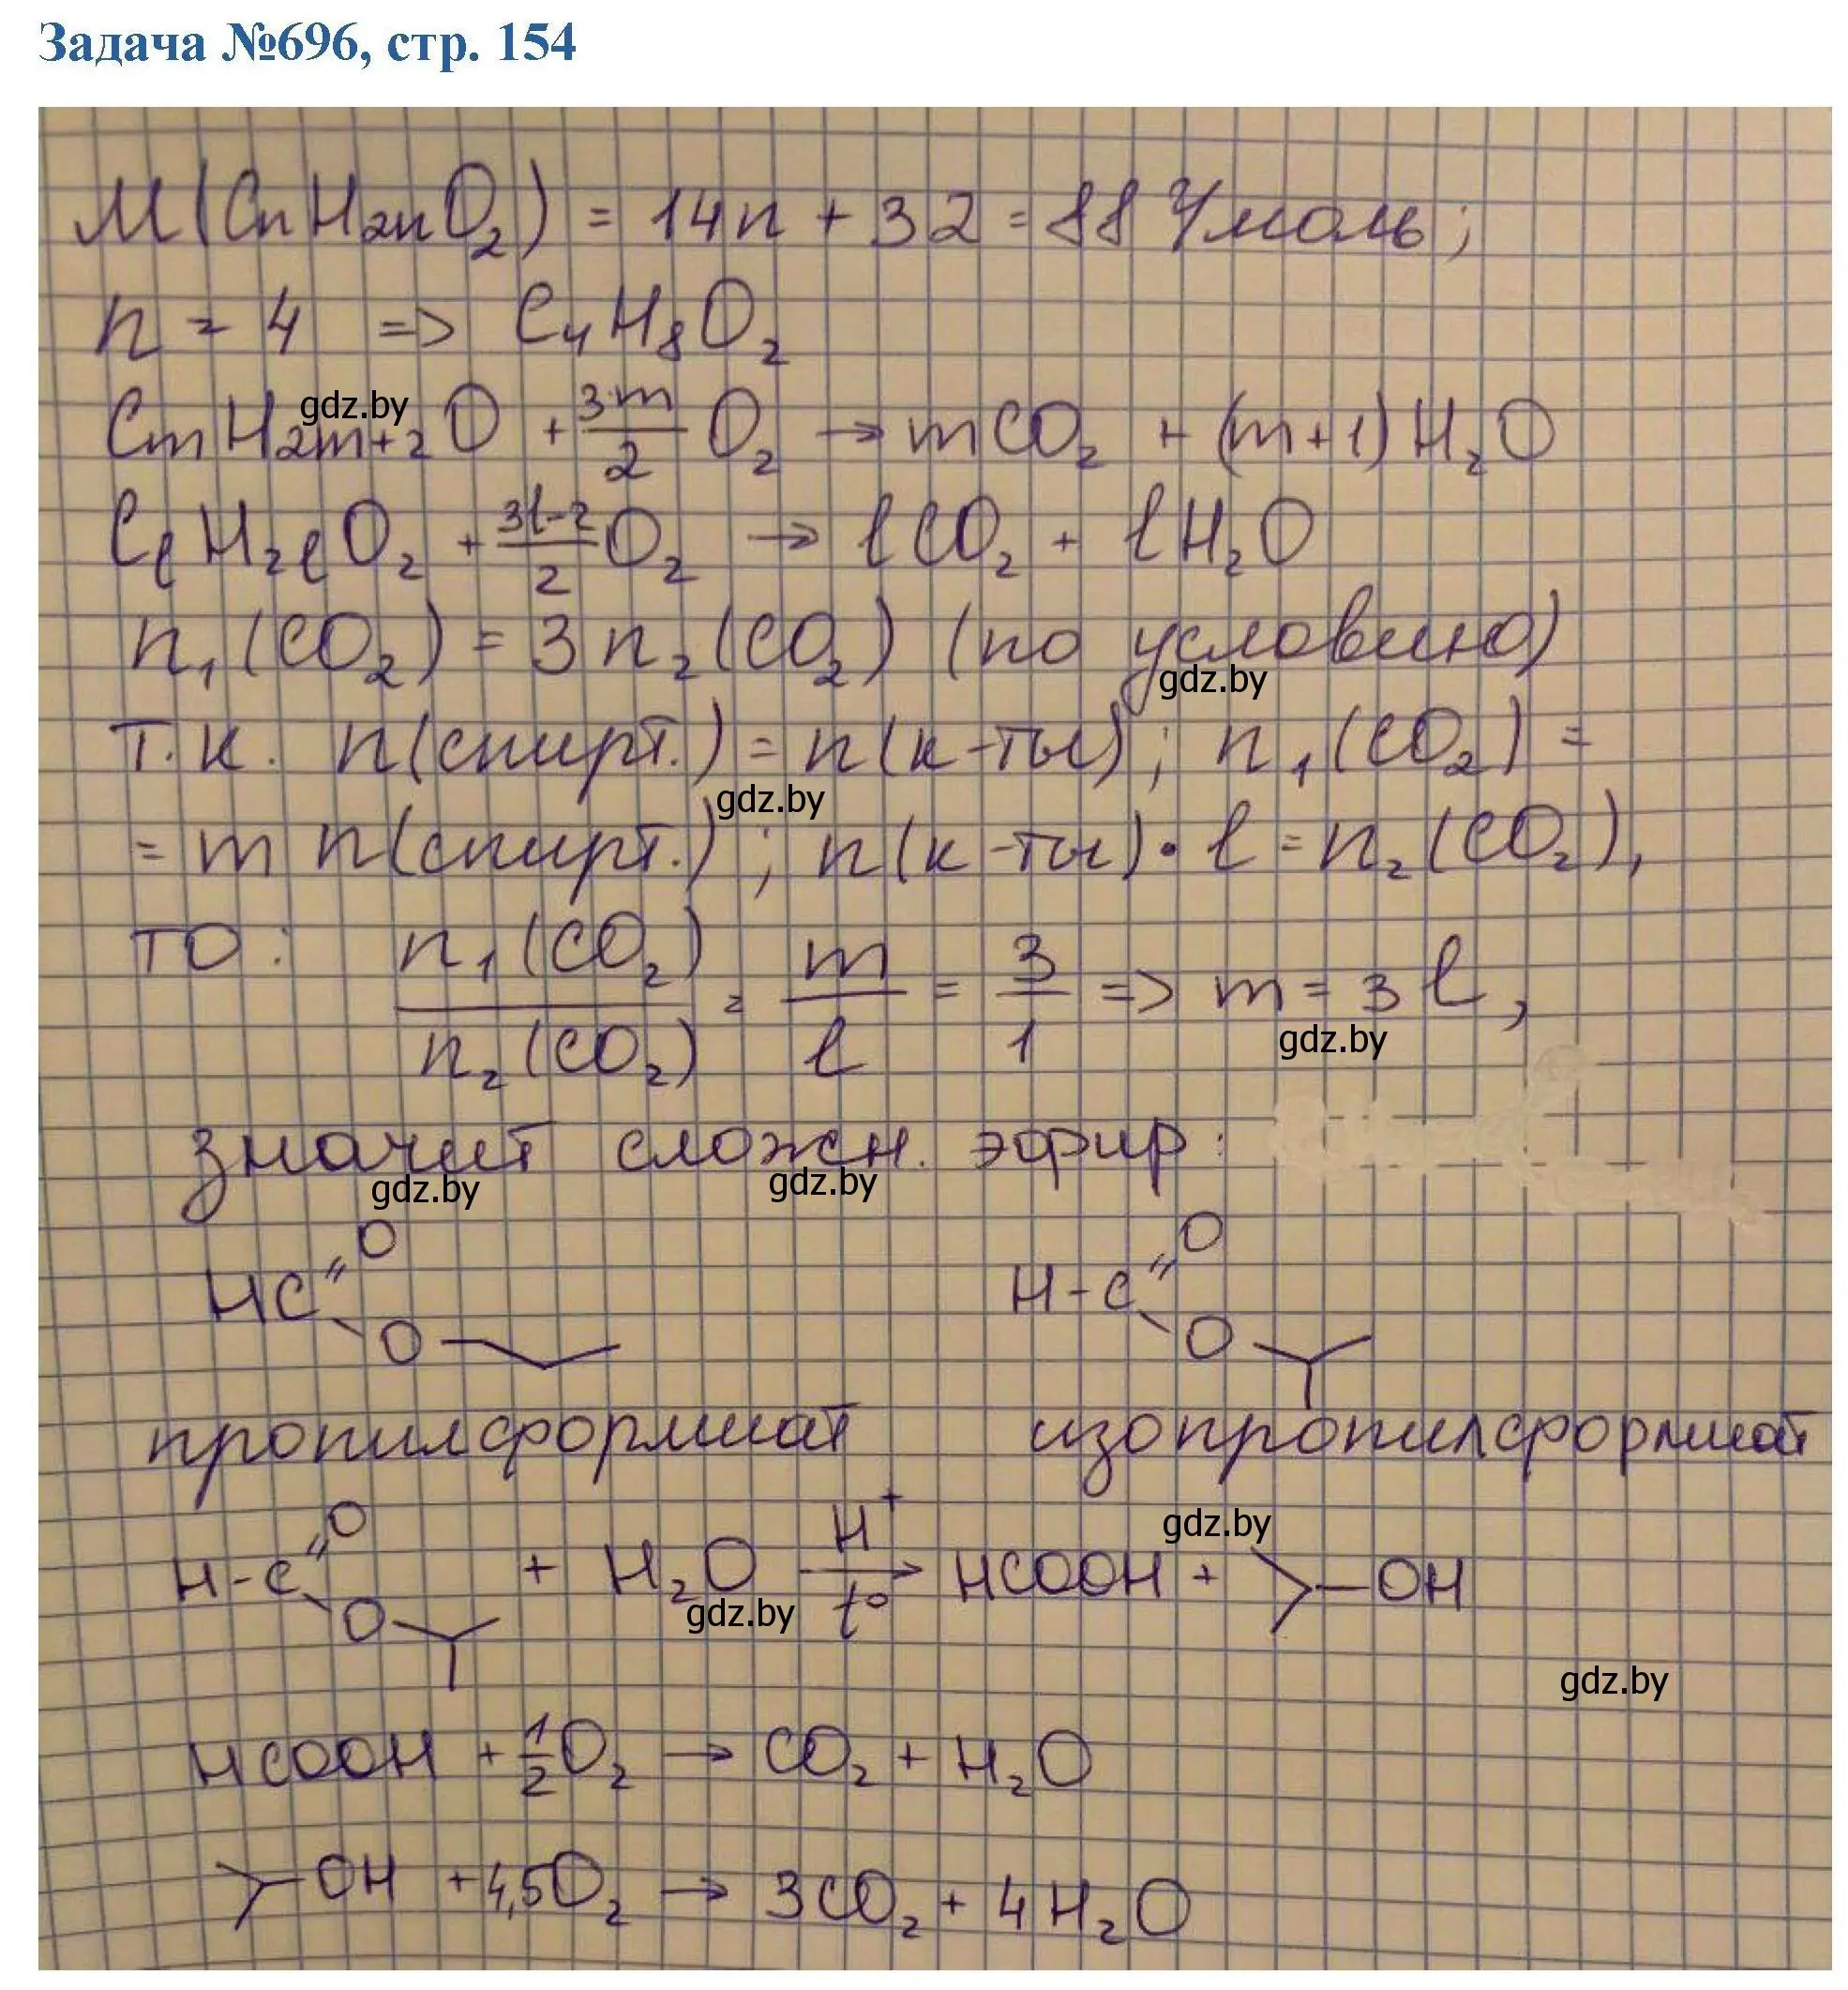 Задача №696, стр. 154
M(CnH2nO2) = 14n + 32 = 88 г/моль;
n = 4 => C4H8O2
gdz.by
CmH2m+2O + 3m/2 O2 → mCO2 + (m+1)H2O
ClH2lO2 + 3l-2/2 O2 → lCO2 + lH2O
n1(CO2) = 3n2(CO2) (по условию)
gdz.by
т.к. n(спирт.) = n(к-ты); n1(CO2) =
gdz.by
= m n(спирт.); n(к-ты)·l = n2(CO2),
то: n1(CO2)/n2(CO2) = m/l = 3/1 => m = 3l,
gdz.by
значит сложн. эфир:
gdz.by gdz.by
HC=O H-C=O
O O
пропилформиат изопропилформиат
gdz.by
H-C=O O + H2O H+ t° → HCOOH + >-OH
gdz.by
gdz.by
HCOOH + 1/2 O2 → CO2 + H2O
>-OH + 4,5O2 → 3CO2 + 4H2O